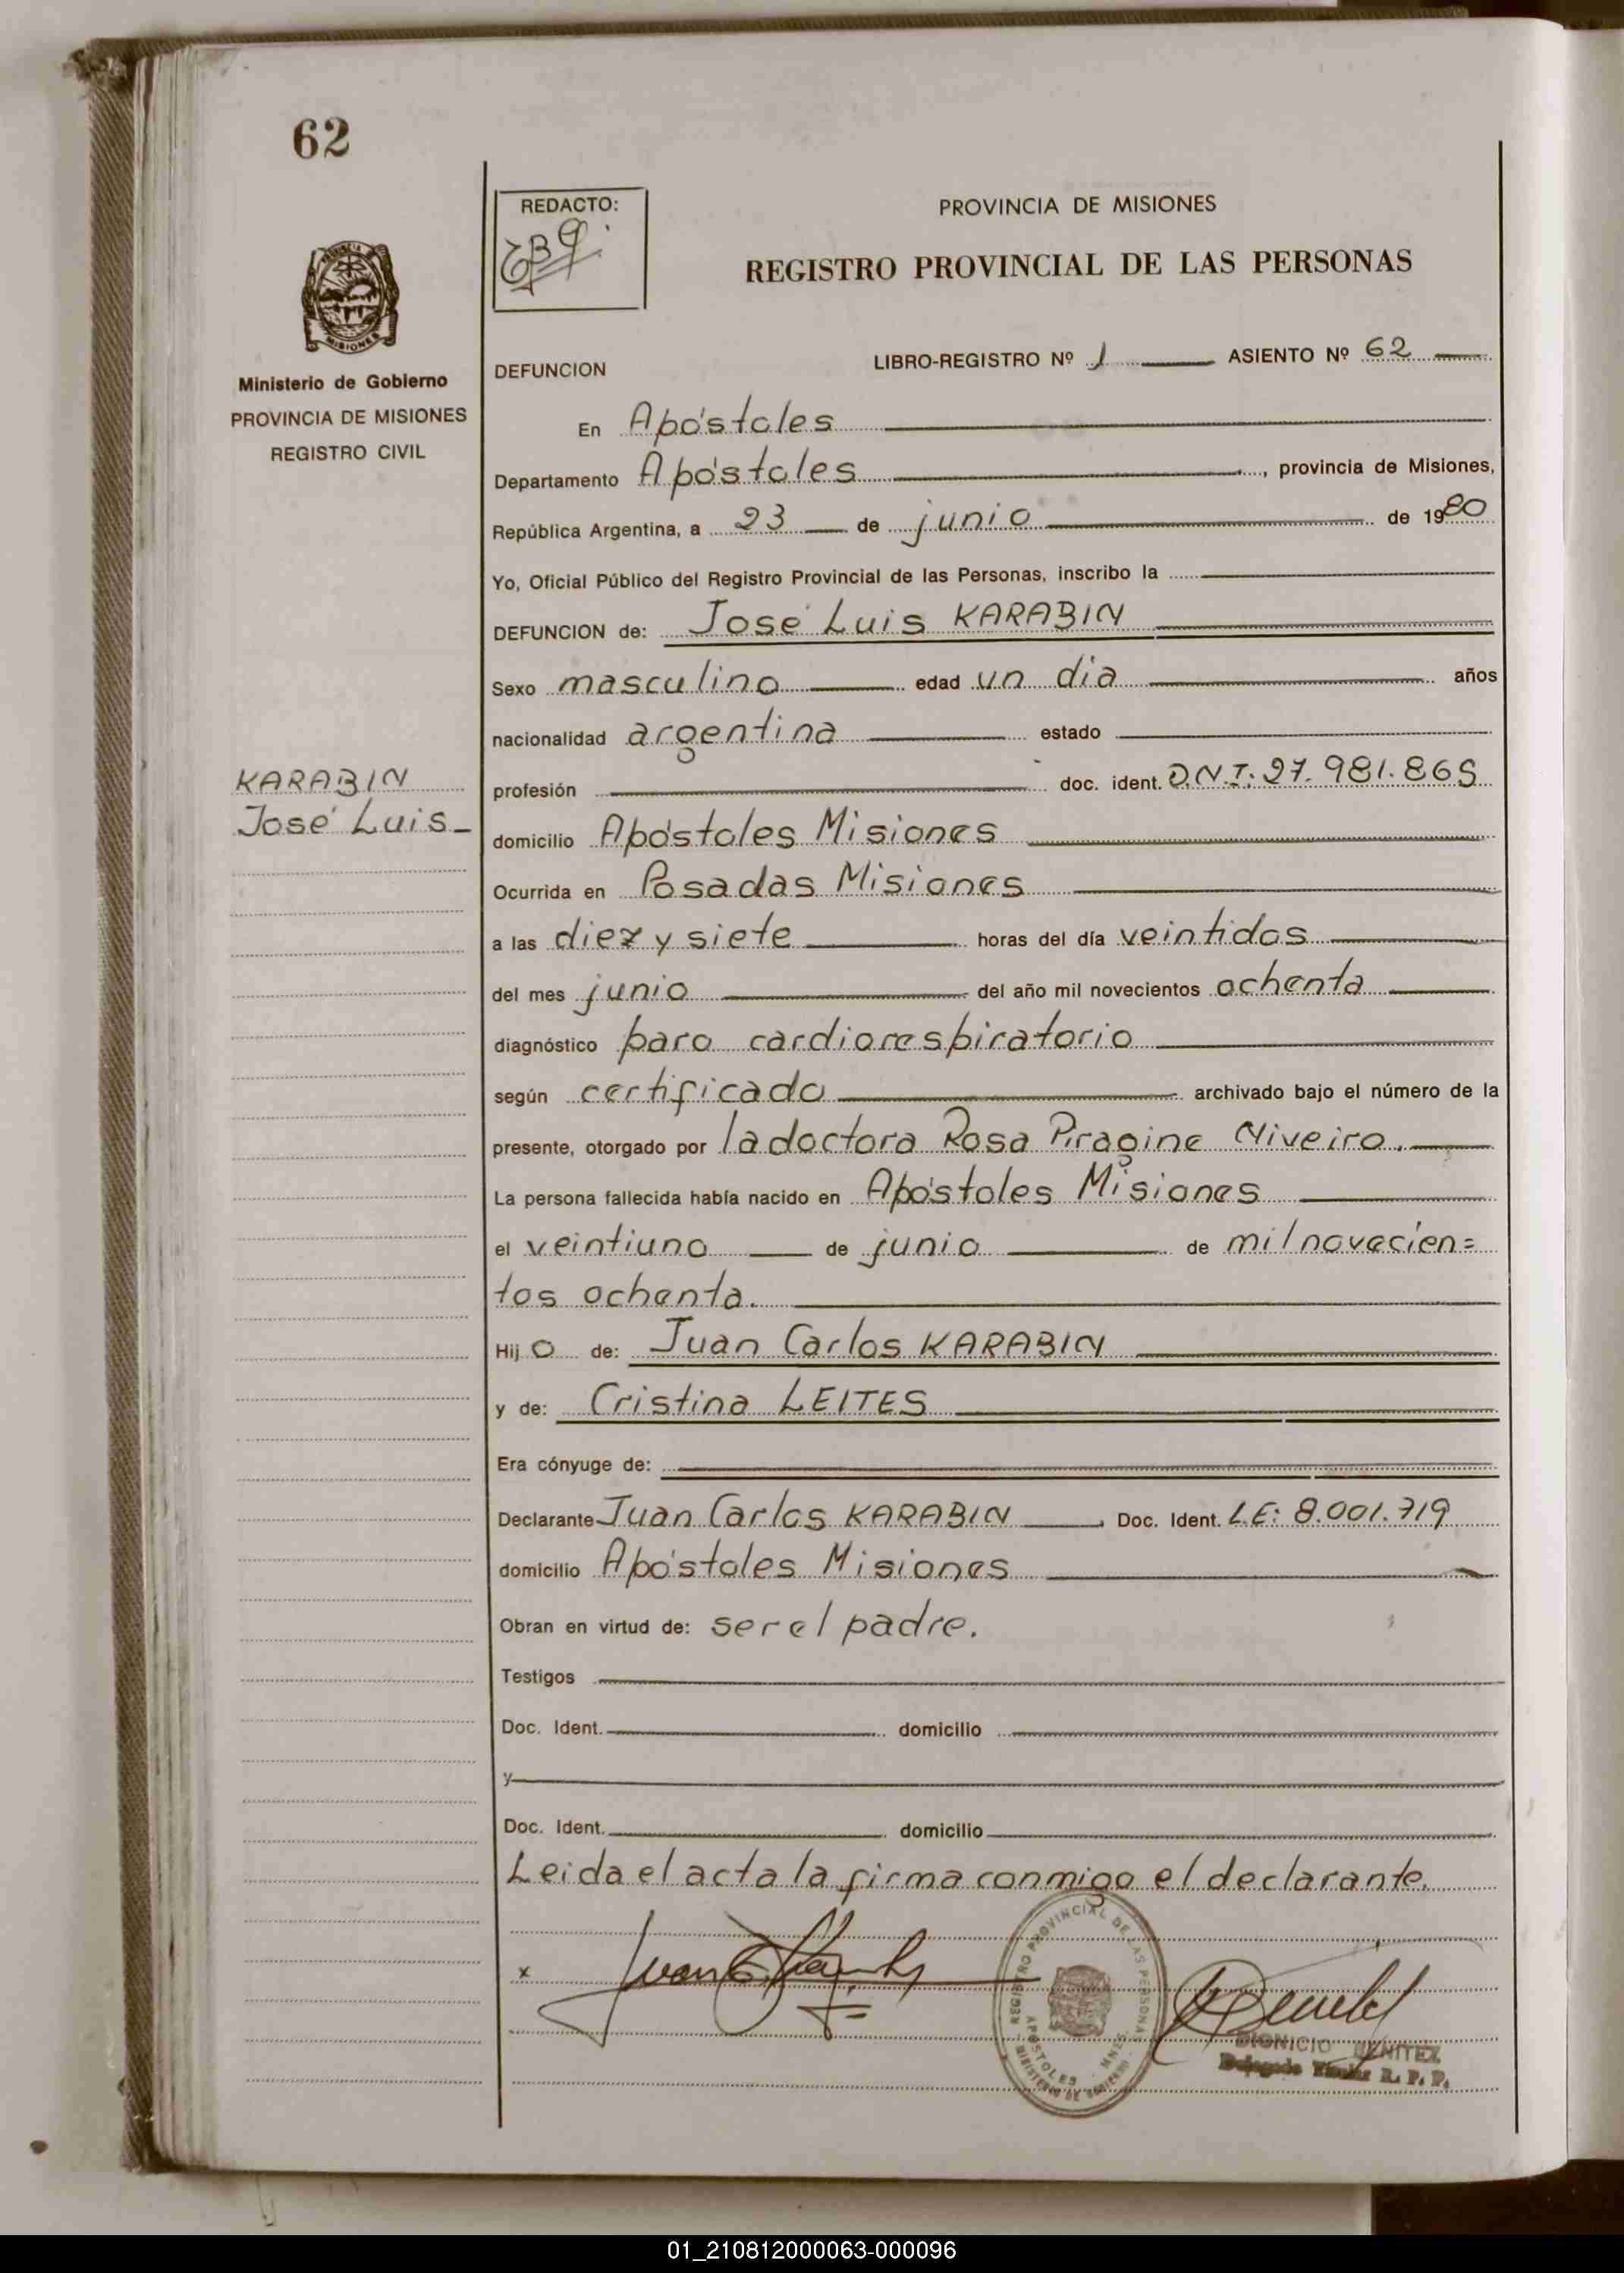 62
REDACTO:
PROVINCIA DE MISIONES
REGISTRO PROVINCIAL DE LAS PERSONAS
PROVINCIA
MISIONES
Ministerio de Gobierno
PROVINCIA DE MISIONES
REGISTRO CIVIL
DEFUNCION LIBRO-REGISTRO Nº 1 ASIENTO Nº 62
En Apóstoles
Departamento Apóstoles, provincia de Misiones,
República Argentina, a 23 de junio de 1980
Yo, Oficial Público del Registro Provincial de las Personas, inscribo la
DEFUNCION de: José Luis KARABIN
Sexo masculino edad un dia años
nacionalidad argentina estado
KARABIN
José Luis
profesión doc. ident. D.N.I. 27.981.865
domicilio Apóstoles Misiones
Ocurrida en Posadas Misiones
a las diez y siete horas del día veintidos
del mes junio del año mil novecientos ochenta
diagnóstico paro cardiorespiratorio
según certificado archivado bajo el número de la
presente, otorgado por la doctora Rosa Piragine Niveiro.
La persona fallecida había nacido en Apóstoles Misiones
el veintiuno de junio de mil novecien=
tos ochenta.
Hijo de: Juan Carlos KARABIN
y de: Cristina LEITES
Era cónyuge de:
Declarante Juan Carlos KARABIN. Doc. Ident. L.E: 8.001.719
domicilio Apóstoles Misiones
Obran en virtud de: ser el padre.
Testigos
Doc. Ident. domicilio
y
Doc. Ident. domicilio
Leida el acta la firma conmigo el declarante.
x
REGISTRO PROVINCIAL DE LAS PERSONAS
APOSTOLES MNES
MINISTERIO DE GOBIERNO
DIONICIO BENITEZ
Delegado Titular R. P. P.
01_210812000063-000096